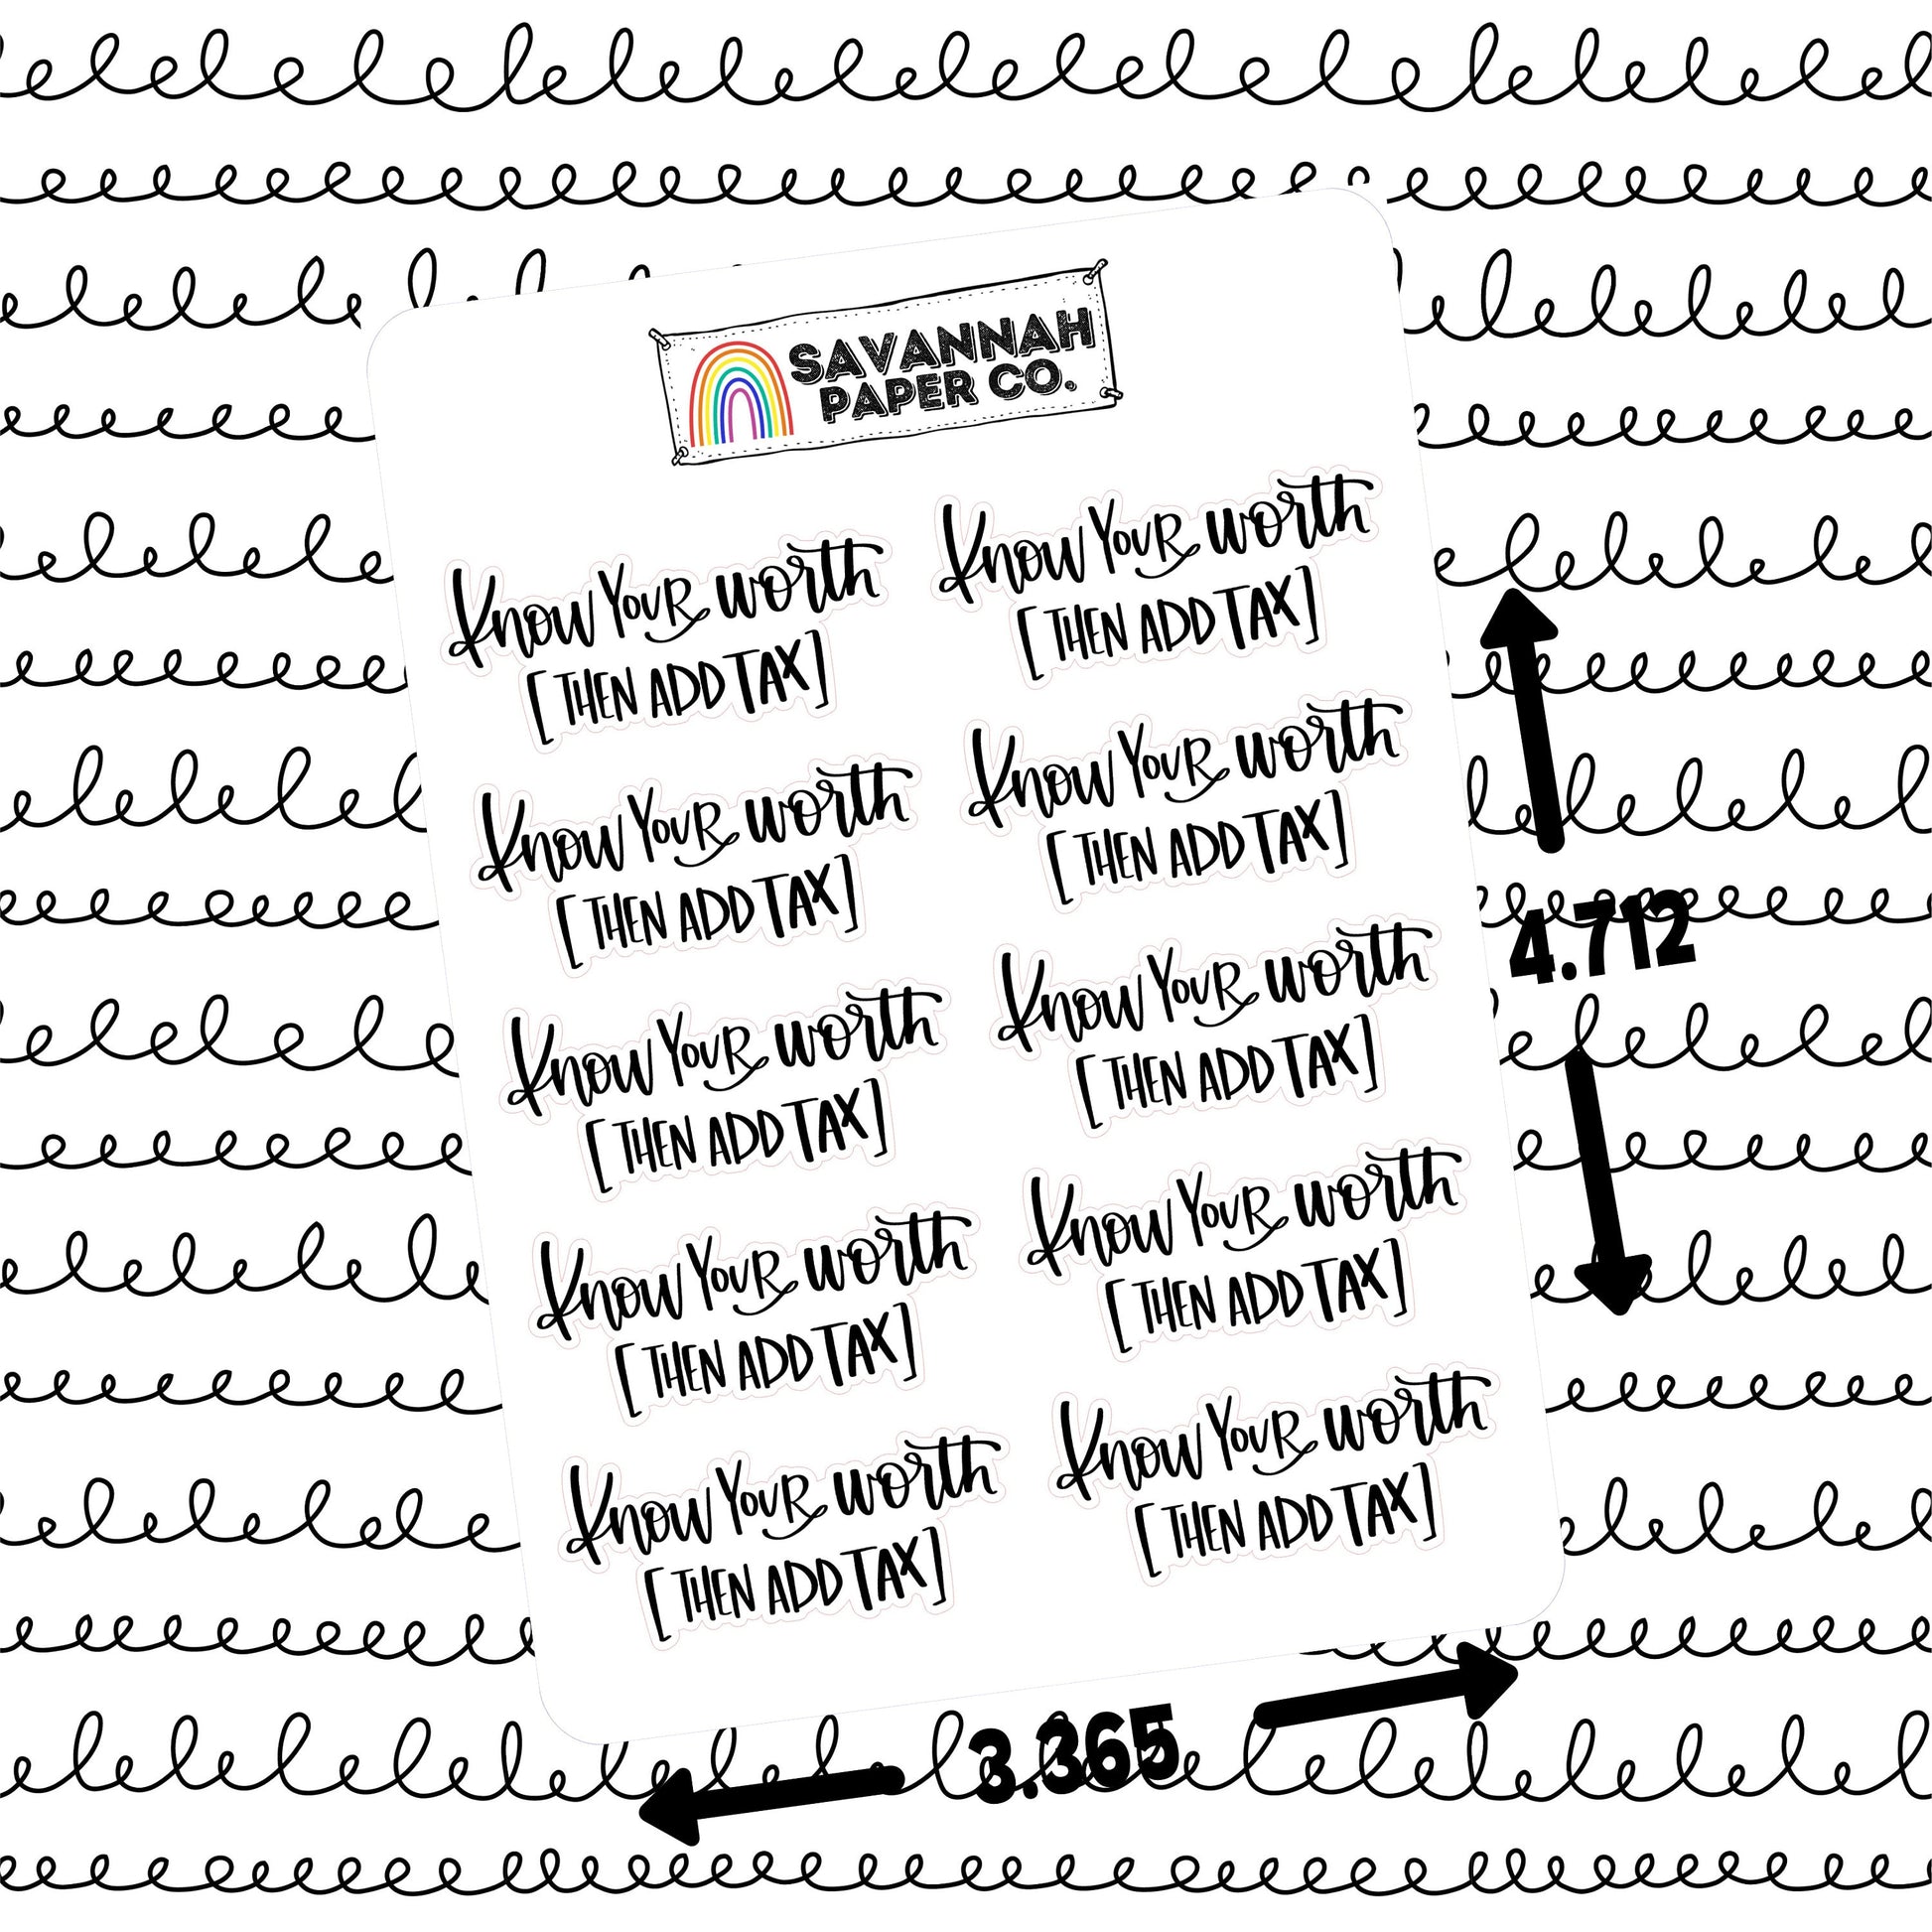 SAVANNAH
PAPER CO.
Know YOUR worth
[THEN ADD TAX]
Know YOUR worth
[THEN ADD TAX]
Know YOUR worth
[THEN ADD TAX]
Know YOUR worth
[THEN ADD TAX]
Know YOUR worth
[THEN ADD TAX]
Know YOUR worth
[THEN ADD TAX]
Know YOUR worth
[THEN ADD TAX]
Know YOUR worth
[THEN ADD TAX]
Know YOUR worth
[THEN ADD TAX]
Know YOUR worth
[THEN ADD TAX]
4.712
3.365